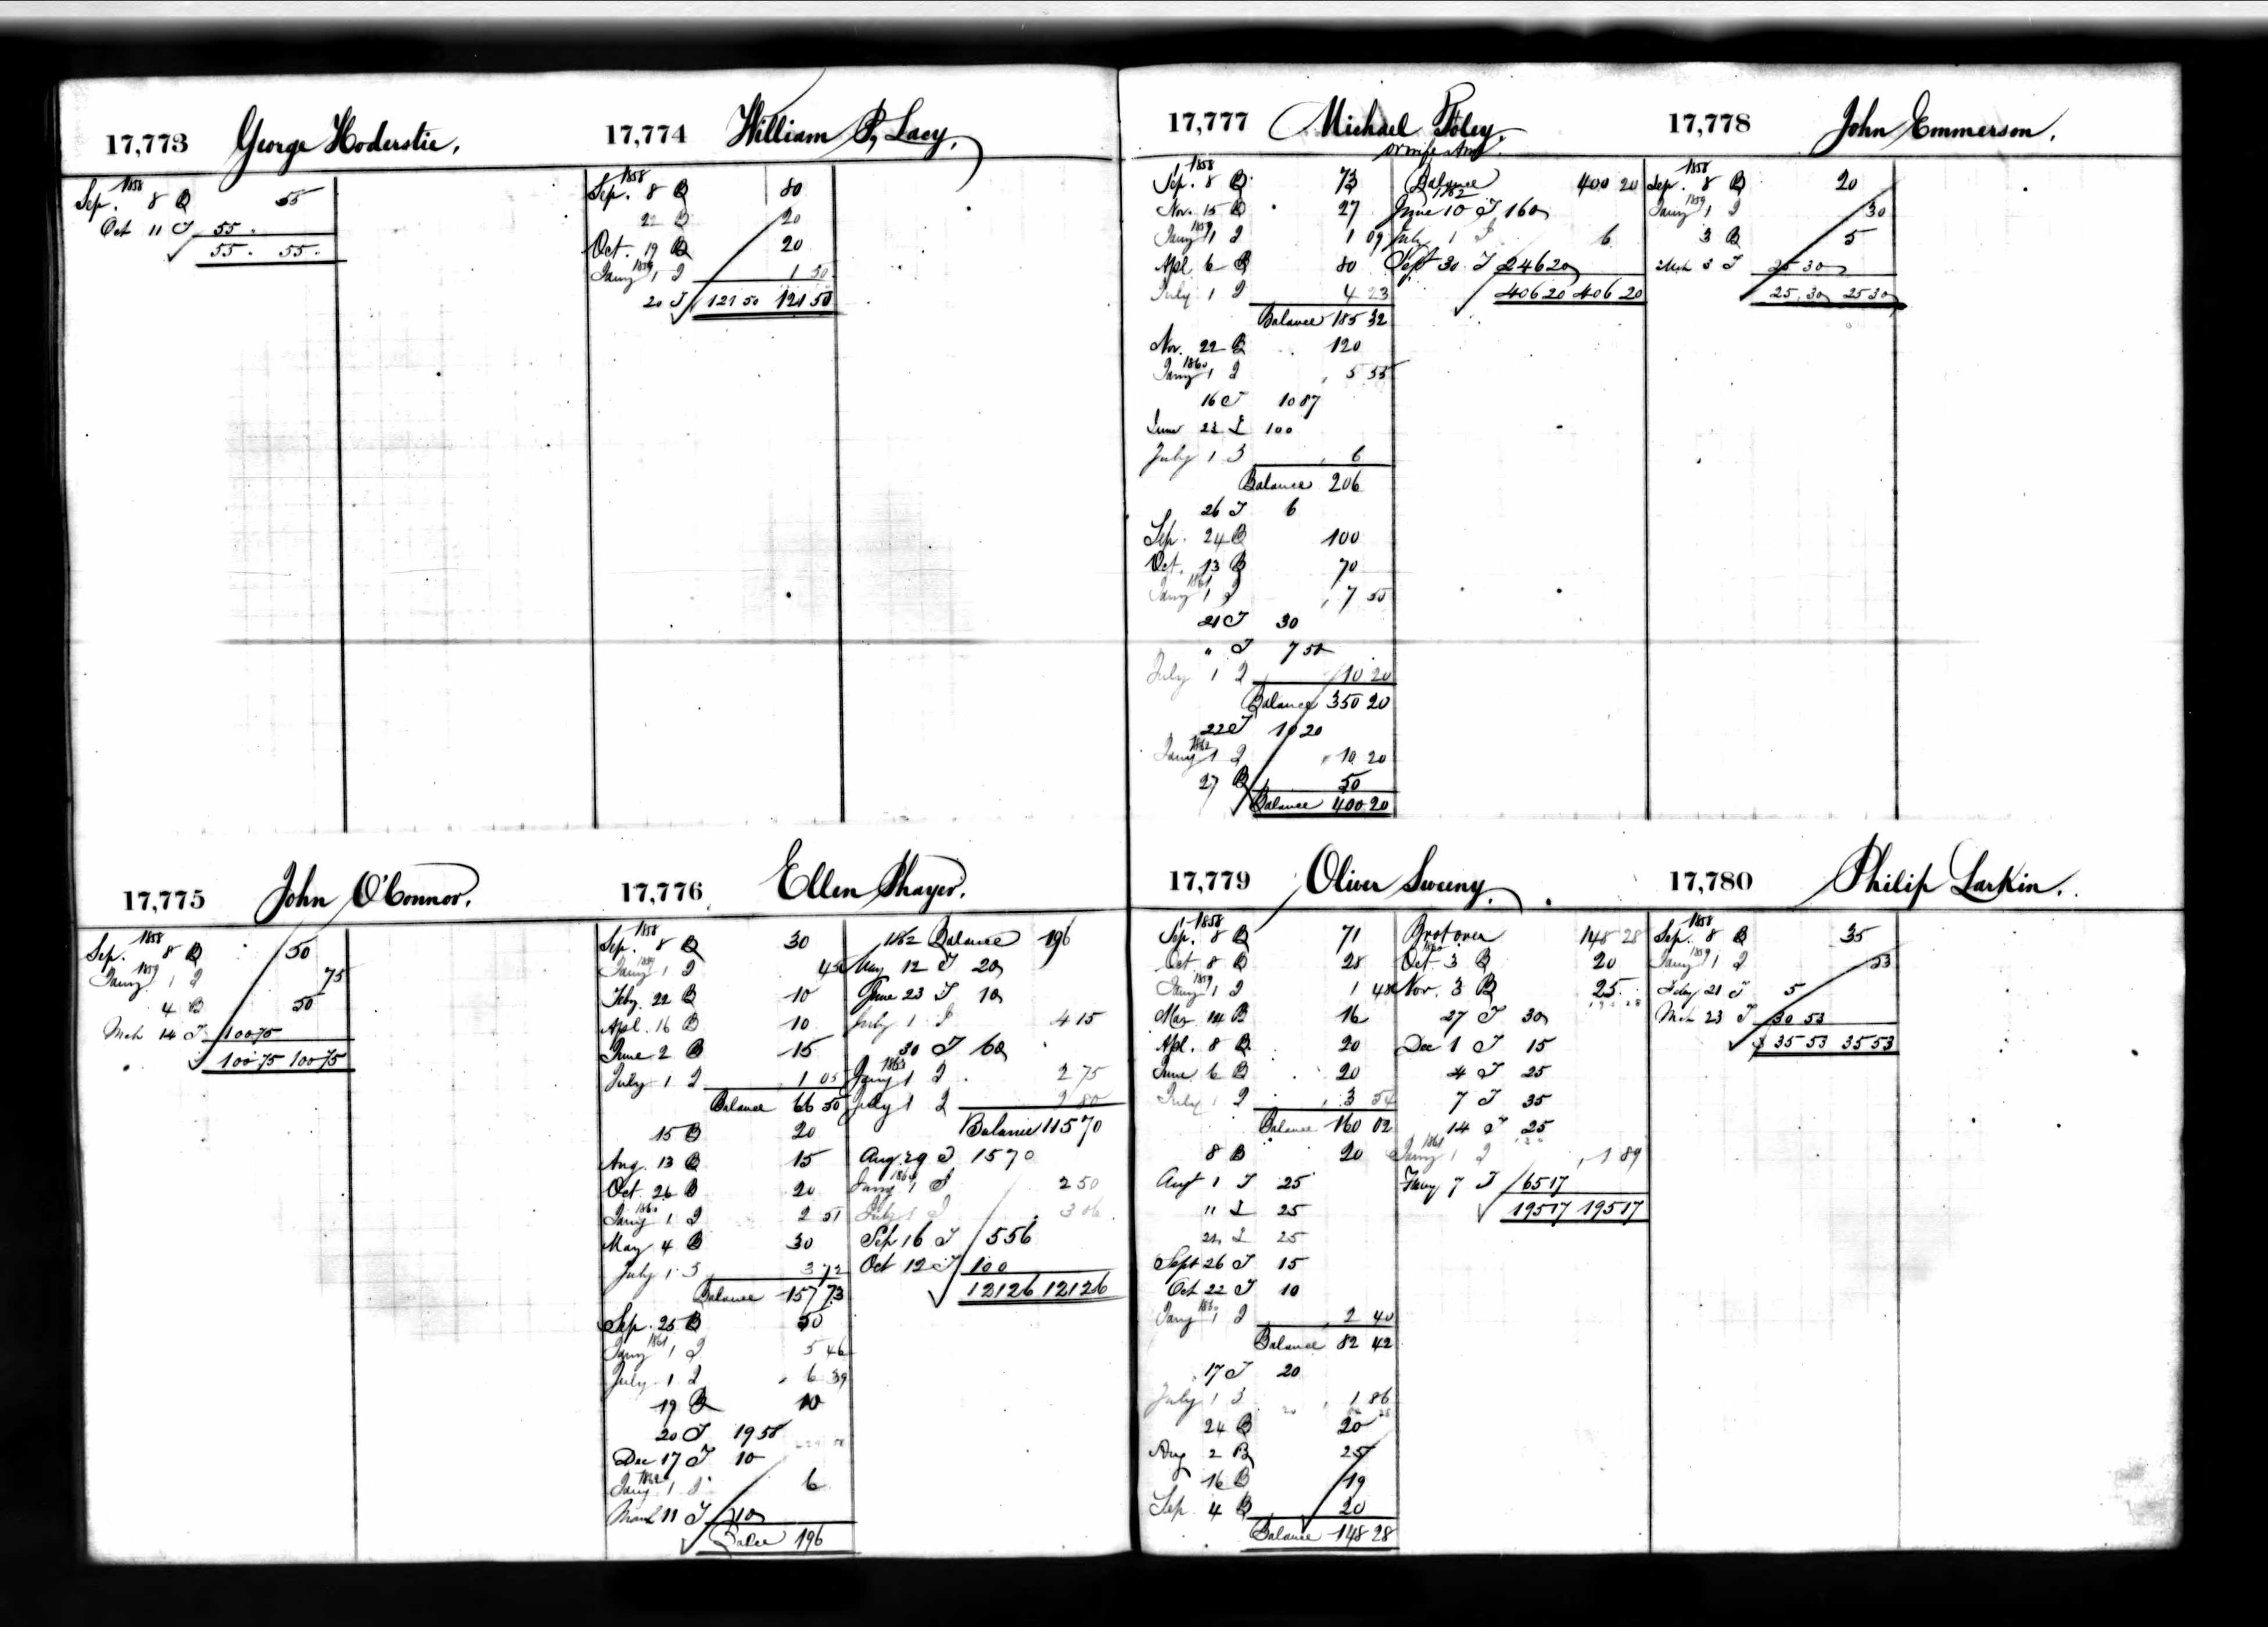 17,773 George Hoderstie.
1858
Sep. 8 B 55
Oct 11 T 55.
55. 55.
17,774 William P, Lacy,
1858
Sep. 8 B 80
22 B 20
Oct. 19 B 20
1859
Jany 1 I 1 50
20 T 121 50 121 50
17,775 John O'Connor.
1858
Sep. 8 B 50
1859
Jany 1 I 75
4 B 50
Mch 14 T 100 75
100 75 100 75
17,776 Ellen Thayer.
1858
Sep. 8 B 30
1859
Jany 1 I 45
Feby. 22 B 10
Apl. 16 B 10
June 2 B 15
July 1 I 1 05
Balance 66 50
15 B 20
Aug. 13 B 15
Oct. 26 B 20
1860
Jany 1 I 2 51
May 4 B 30
July 1 I 3 72
Balance 157 73
Sep. 25 B 50
1861
Jany 1 I 5 46
July 1 I 6 39
19 B 10
20 T 19 58
Dec 17 T 10
1862
Jany 1 I 6
March 11 T 10
Balce 196
1862 Balance 196
May 12 T 20
June 23 T 10
July 1 I 4 15
30 T 60
1863
Jany 1 I 2 75
July 1 I 2 80
Balance 115 70
Aug. 29 T 15 70
1864
Jany 1 I 2 50
July 1 I 3 06
Sep 16 T 5 56
Oct 12 T 100
121 26 121 26
17,777 Michael Foley.
or wife Ann
1858
Sep. 8 B 73
Nov. 15 B 27
1859
Jany 1 I 1 09
Apl 6 B 80
July 1 I 4 23
Balance 185 32
Nov. 22 B 120
1860
Jany 1 I 5 55
16 T 10 87
June 23 T 100
July 1 I 6
Balance 206
26 T 6
Sep. 24 B 100
Oct. 13 B 70
1861
Jany 1 I 7 50
21 T 30
" T 7 50
July 1 I 10 20
Balance 350 20
22 T 10 20
1862
Jany 1 I 10 20
27 B 50
Balance 400 20
Balance 400 20
1862
June 10 T 160
July 1 I 6
Sept 30 T 246 20
406 20 406 20
17,778 John Emmerson.
1858
Sep. 8 B 20
1859
Jany 1 I 30
3 B 5
Mch 3 T 25 30
25 30 25 30
17,779 Oliver Sweeny.
1858
Sep. 8 B 71
Oct 8 B 28
1859
Jany 1 I 1 48
Mar 14 B 16
Apl. 8 B 20
June 6 B 20
July 1 I 3 54
Balance 160 02
8 B 20
Augt 1 T 25
" T 25
22 T 25
Sept 26 T 15
Oct 22 T 10
1860
Jany 1 I 2 40
Balance 82 42
17 T 20
July 1 I 1 86
24 B 20
Aug 2 B 25
16 B 19
Sep. 4 B 20
Balance 148 28
Brot over 148 28
1860
Oct. 3 B 20
Nov. 3 B 25
27 T 30
Dec 1 T 15
4 T 25
7 T 35
14 T 25
1861
Jany 1 I 1 89
Jany 7 T 65 17
195 17 195 17
17,780 Philip Larkin.
1858
Sep. 8 B 35
1859
Jany 1 I 53
Feby 21 T 5
Mch 23 T 30 53
35 53 35 53